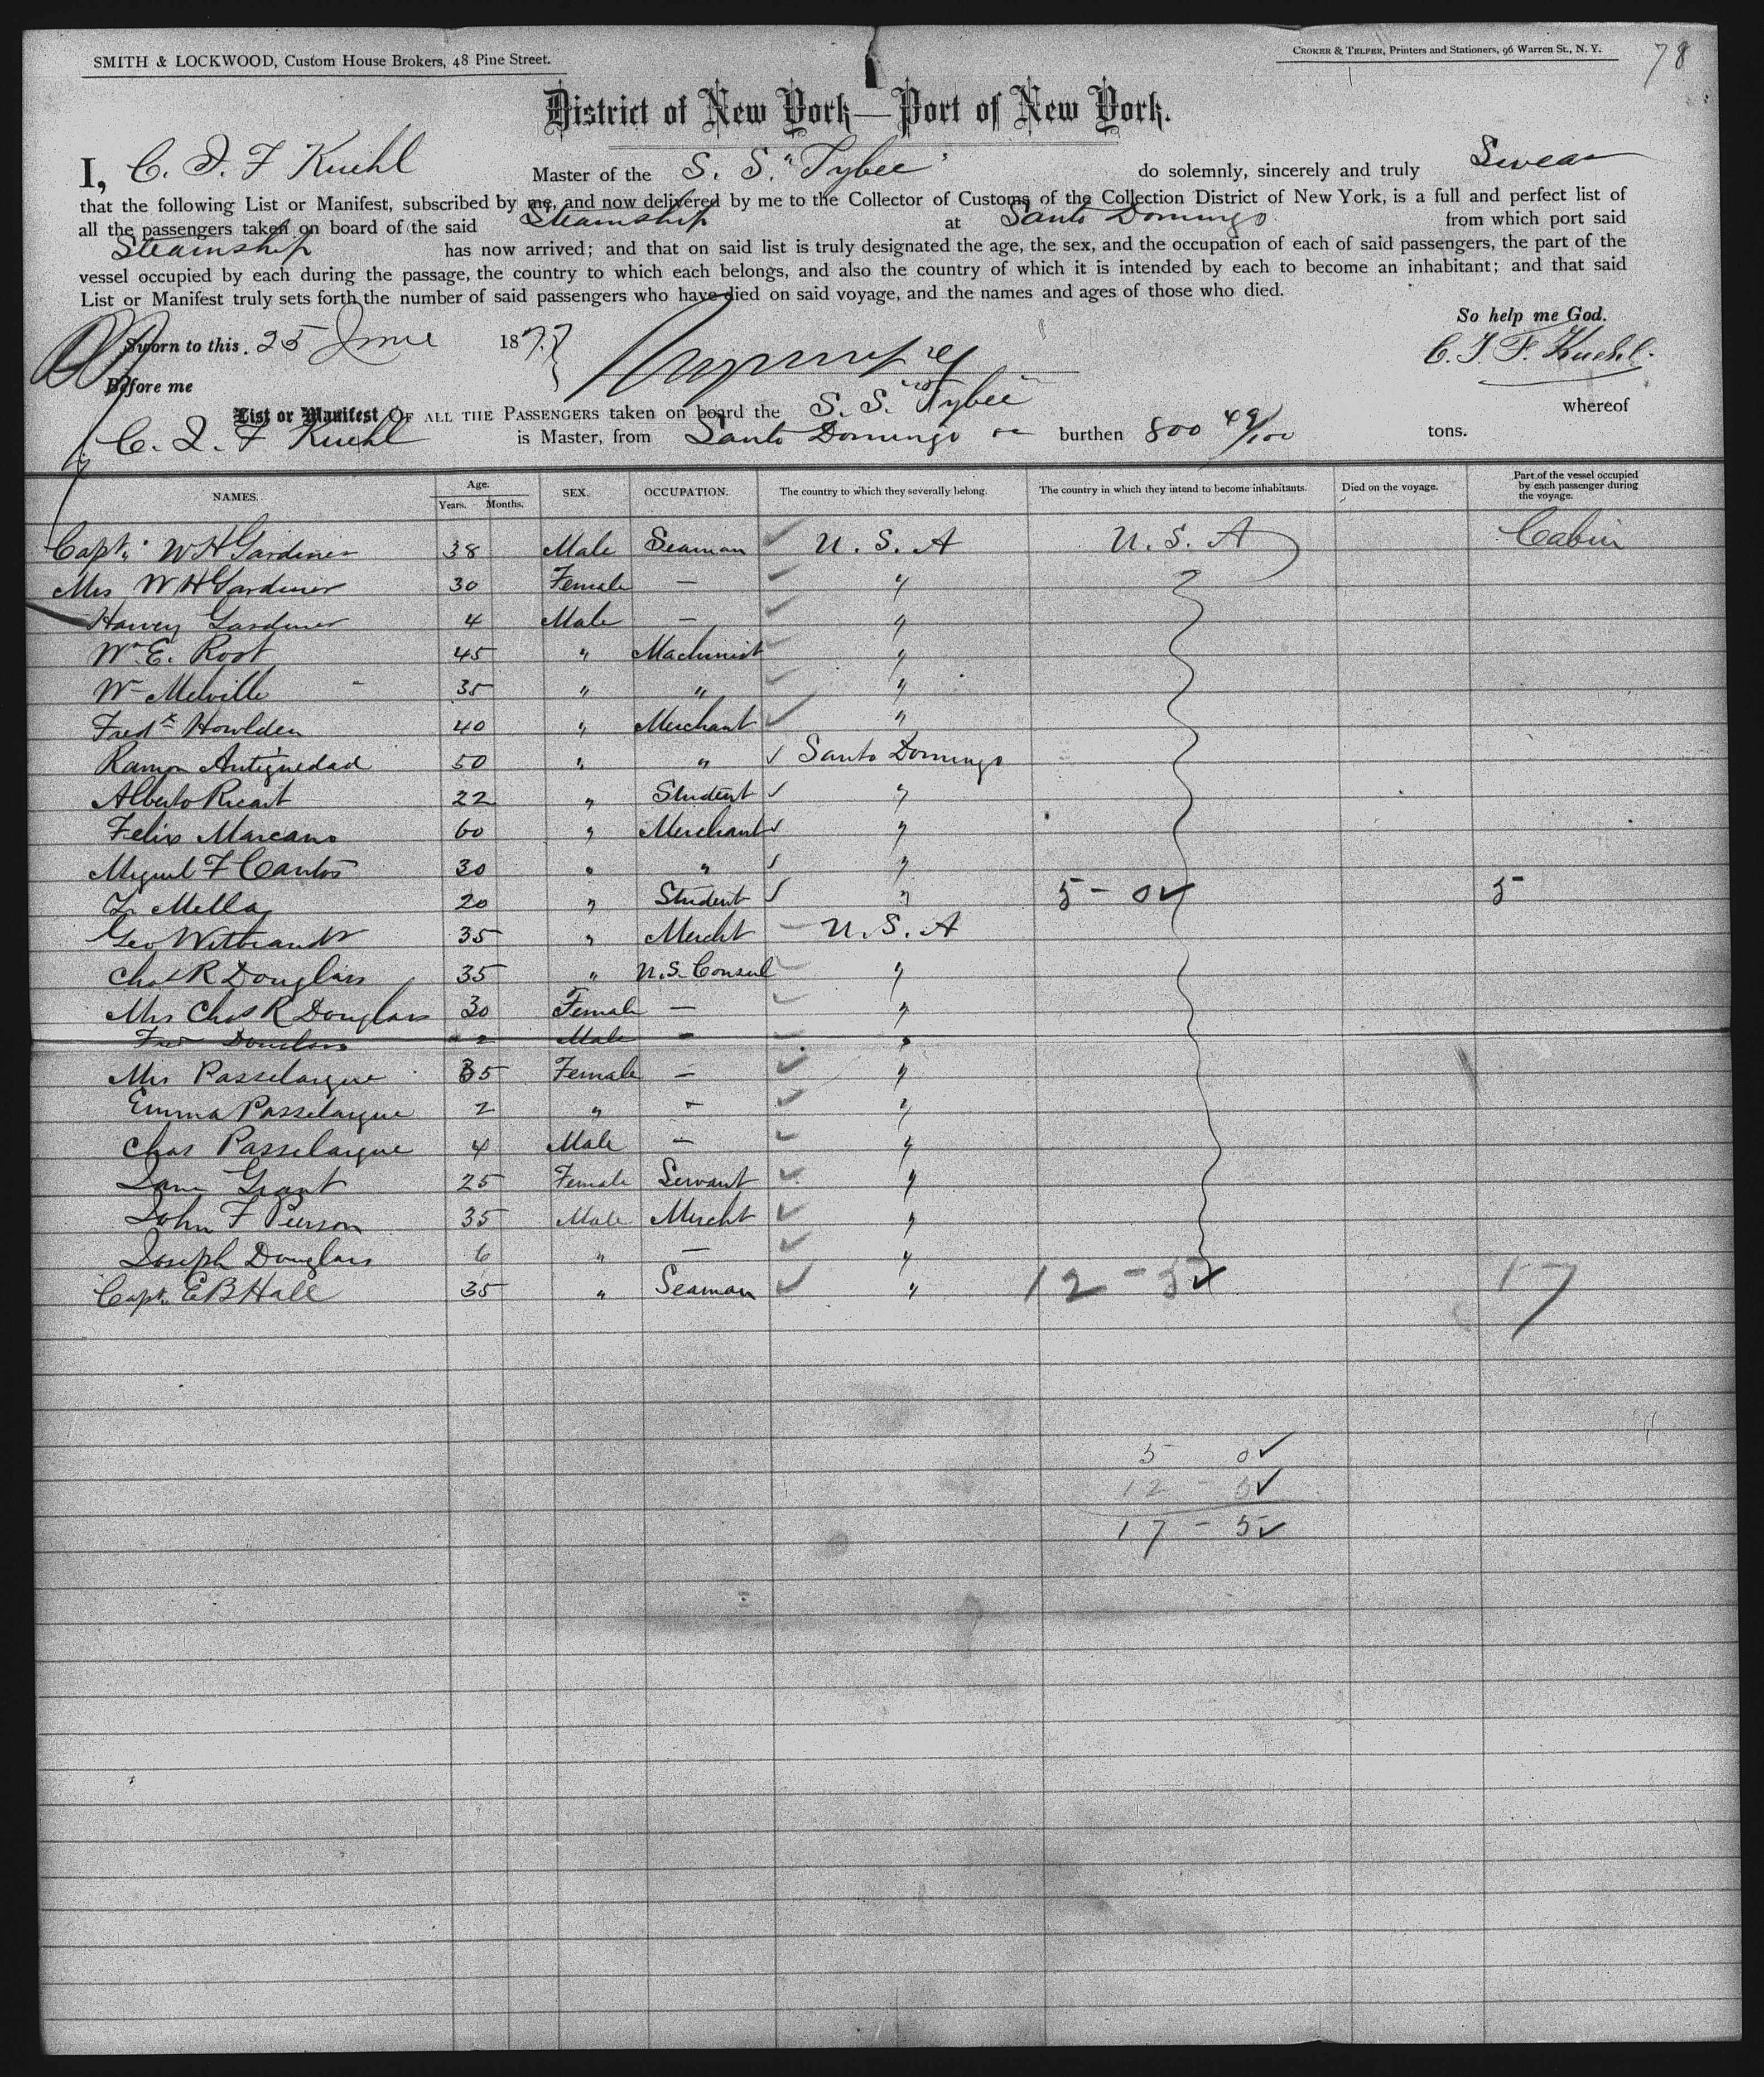 SMITH & LOCKWOOD, Custom House Brokers, 48 Pine Street.
CROKER & TELFER, Printers and Stationers, 96 Warren St., N. Y.
78
District of New York—Port of New York.
I, C. I. F Kuehl Master of the S. S. "Tybee" do solemnly, sincerely and truly Swear
that the following List or Manifest, subscribed by me, and now delivered by me to the Collector of Customs of the Collection District of New York, is a full and perfect list of
all the passengers taken on board of the said Steamship at Santo Domingo from which port said
Steamship has now arrived; and that on said list is truly designated the age, the sex, and the occupation of each of said passengers, the part of the
vessel occupied by each during the passage, the country to which each belongs, and also the country of which it is intended by each to become an inhabitant; and that said
List or Manifest truly sets forth the number of said passengers who have died on said voyage, and the names and ages of those who died.
So help me God.
Sworn to this 25 June 1877
C. I. F. Kuehl.
Before me
List or Manifest OF ALL THE PASSENGERS taken on board the S. S. "Tybee" whereof
C. I. F Kuehl is Master, from Santo Domingo burthen 800 49/100 tons.
NAMES. Age. Years. Months. SEX. OCCUPATION. The country to which they severally belong. The country in which they intend to become inhabitants. Died on the voyage. Part of the vessel occupied by each passenger during the voyage.
Capt. W H Gardiner 38 Male Seaman U. S. A U. S. A Cabin
Mrs W H Gardiner 30 Female — "
Harvey Gardiner 4 Male — "
Wm E. Root 45 " Machinist "
Wm Melville 35 " " "
Fredk Howlden 40 " Merchant "
Ramon Antiguedad 50 " " Santo Domingo
Alberto Ricart 22 " Student "
Felix Marcano 60 " Merchant "
Miguel F Cantos 30 " " "
Mella 20 " Student " 5 - 0 5
Geo Witbrandt 35 " Mercht U. S. A
Chas R Douglass 35 " U.S. Consul "
Mrs Chas R Douglass 30 Female — "
Douglass 2 Male - "
Mrs Passelaigue 35 Female — "
Emma Passelaigue 2 " - "
Chas Passelaigue 4 Male — "
Jane Grant 25 Female Servant "
John F Pierson 35 Male Mercht "
Joseph Douglass 6 " — "
Capt. E B Hall 35 " Seaman " 12 - 5 17
5 0
12 - 5
17 - 5